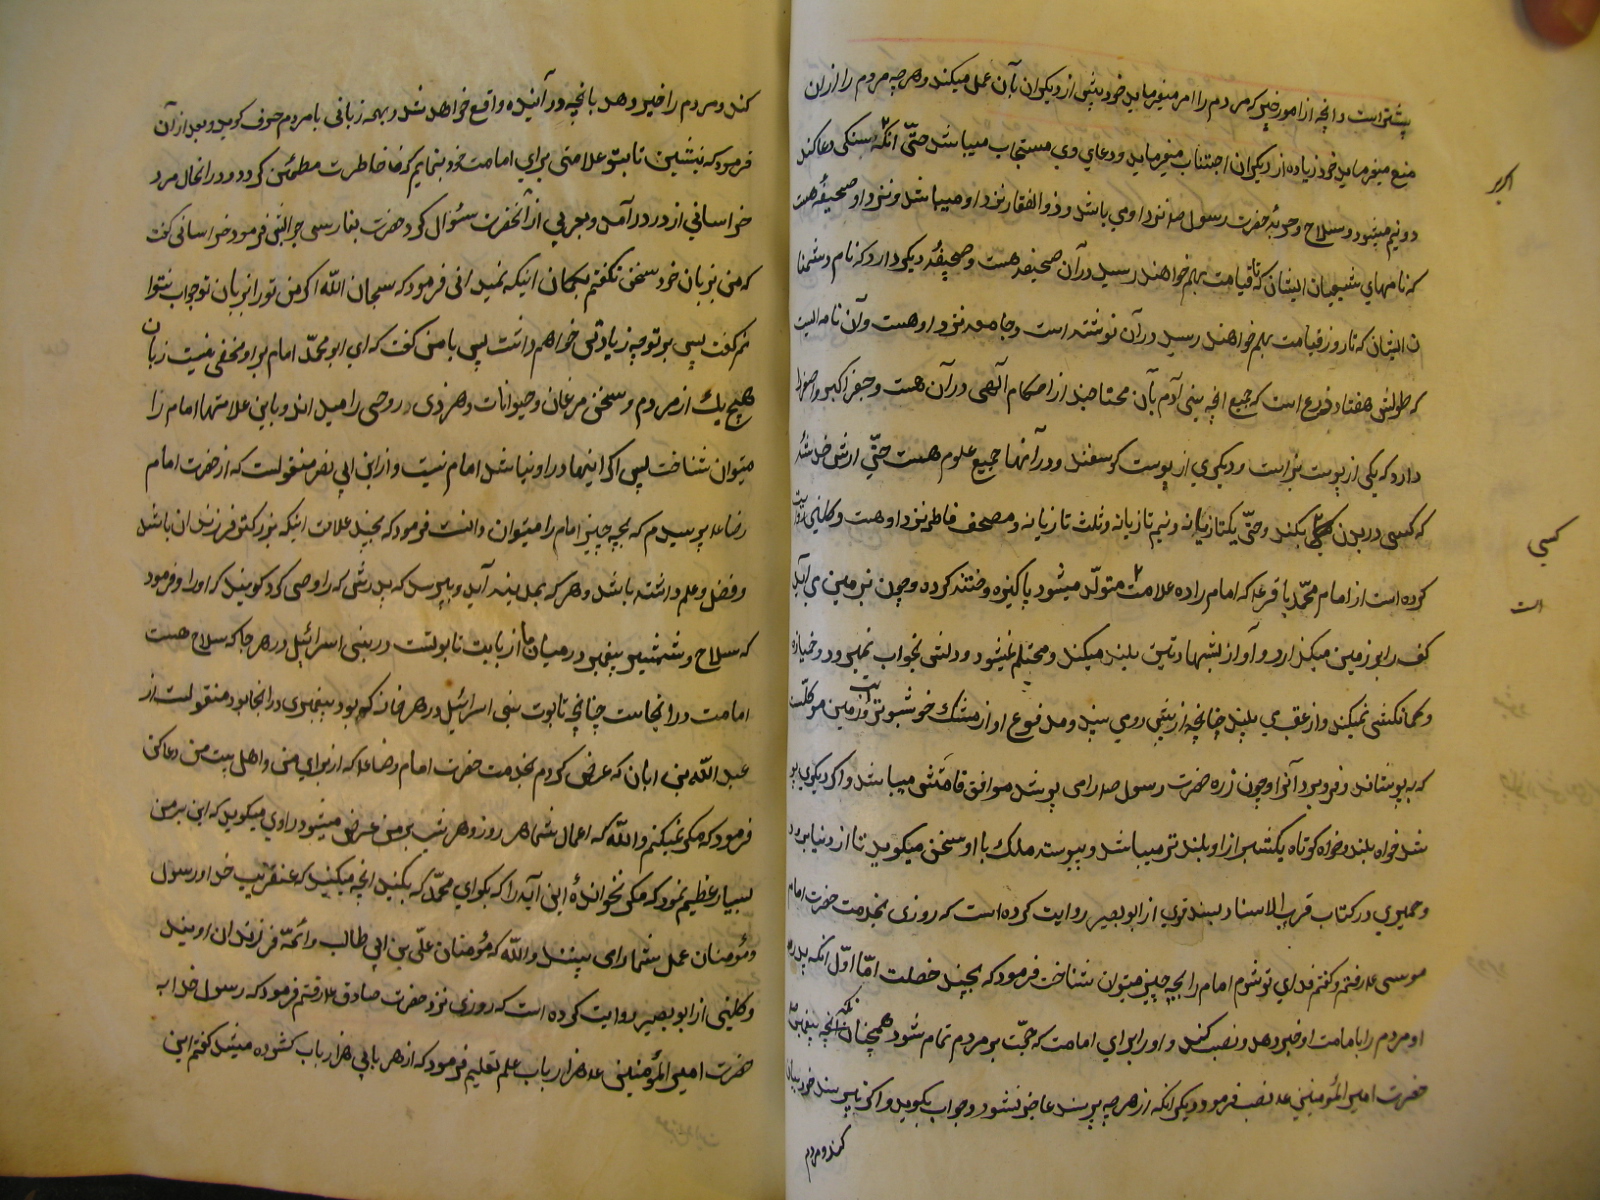 پیشتر است و آنچه از امور خیر که مردم را امر میفرماید خود بیش از دیگران بآن عمل میکند و هر چه مردم را از ان
منع میفرماید خود زیاده از دیکران اجتناب میفرماید و دعای وی مستجاب میباشد حتّی آنکه بسنکی دعا کند
دو نیم میشود و سلاح و حربهٔ حضرت رسول ص نزد او می باشد و ذوالفقار نزد او میباشد و نزد او صحیفهٔ هست
که نامهای شیعیان ایشان که تا قیامت بهم خواهند رسید در آن صحیفه هست و صحیفهٔ دیکر دارد که نام دشمنا
ن ایشان که تا روز قیامت بهم خواهند رسید در آن نوشته است و جامعه نزد او هست و آن نامه ایست
که طولش هفتاد ذرع است که جمیع انچه بنی آدم بآن محتاجند از احکام آلهی در آن هست و جفر اکبر و اصغر را
دارد که یکی از پوست بز است و دیکری از پوست کوسفند و در آنها جمیع علوم هست حتّی ارش خدشهٔ
که کسی در بدن کسی بکند و حتّی یکتازیانه و نیم تازیانه و ثلث تازیانه و مصحف فاطمه نزد او هست و کلینی روایت
کرده است از امام محمّد باقر ع که امام را ده علامت است متولّد میشود پاکیزه و ختنه کرده و چون بر زمین می آید
کف را بر زمین میکذارد و آواز بشهادتین بلند میکند و محتلم نمیشود و دلش بخواب نمیرود و خمیازه
و کمانکشی نمیکند و از عقب می بیند چنانچه از پیش روی بیند و مدفوع او از مشک خوشبوتر است و زمین موکلست
که بپوشاند و فرو برد آنرا و چون زره حضرت رسول ص را می پوشد موافق قامتش میباشد و اگر دیکری پو
شد خواه بلند و خواه کوتاه یکشبر از او بلندتر میباشد و پیوسته ملک با او سخن میکوید تا از دنیا برود
و حمیری در کتاب قرب الاسناد بسند قوی از ابو بصیر روایت کرده است که روزی بخدمت حضرت امام
موسی ع رفتم و گفتم فدای تو شوم امام را بچه چیز میتوان شناخت فرمود که بچند خصلت امّا اوّل آنکه پدر
او مردم را بامامت او خبر دهد و نصب کند و او را برای امامت که حجّت بر مردم تمام شود همچنان که آنچه پیغمبر ص
حضرت امیر المؤمنین ع نصب فرمود دیکر انکه از هر چه پرسند عاجز نشود و جواب بکوید و اکر نپرسند خود بیان
کند و مردم
اکبر
کسی
است
کند و مردم را خبر دهد بآنچه در آینده واقع خواهد شد و بهمه زبانی با مردم حرف کوید و بعد از آن
فرمود که بنشین تا بتو علامتی برای امامت خود بنمایم که خاطرت مطمئن کردد و در انحال مرد
خراسانی از در درآمد و بعربی از آنحضرت سئوال کرد حضرت بفارسی جوابش فرمود خراسانی گفت
که من بزبان خود سخن نکفتم بکمان اینکه نمیدانی فرمود که سبحان اللّه اکر من تو را بزبان تو جواب نتوا
نم گفت پس بر تو چه زیادتی خواهم داشت پس با من گفت که ای ابو محمّد امام بر او مخفی نیست زبان
هیچ یک از مردم و سخن مرغان و حیوانات و هر ذی روحی را میداند و باین علامتها امام را
میتوان شناخت پس اکر اینها در او نباشد امام نیست و از ابن ابی نصر منقولست که از حضرت امام
رضا ع پرسیدم که بچه چیز امام را میتوان دانست فرمود که بچند علامت اینکه بزرکتر فرزندان باشد
و فضل و علم داشته باشد و هر که بمدینه آید و بپرسد که پدرش که را وصی کرد کویند که او را و فرمود
که سلاح و شمشیر پیغمبر در میان ما از بابت تابوتست در بنی اسرائیل در هر جا که سلاح هست
امامت در انجاست چنانچه تابوت بنی اسرائیل در هر خانه که بود پیغمبری در انجا بود منقولست از
عبد اللّه بن ابان که عرض کردم بخدمت حضرت امام رضا ع که از برای من و اهل بیت من دعا کن
فرمود که مکر نمیکنم و اللّه که اعمال شما هر روز و هر شب بر من عرض میشود راوی میکوید که این بر من
بسیار عظیم نمود که مکر نخواندهٔ این آیه را که بکو ای محمّد که بکنید انچه میکنید که عنقریب خدا و رسول
و مؤمنان عمل شما را می بینند و اللّه که مؤمنان علّی بن ابی طالب و ائمّه فرزندان اویند
و کلینی از ابو بصیر روایت کرده است که روزی نزد حضرت صادق ع رفتم فرمود که رسول خدا ب
حضرت امیر المؤمنین ع هزار باب علم تعلیم فرمود که از هر بابی هزار باب کشوده میشد کفتم این